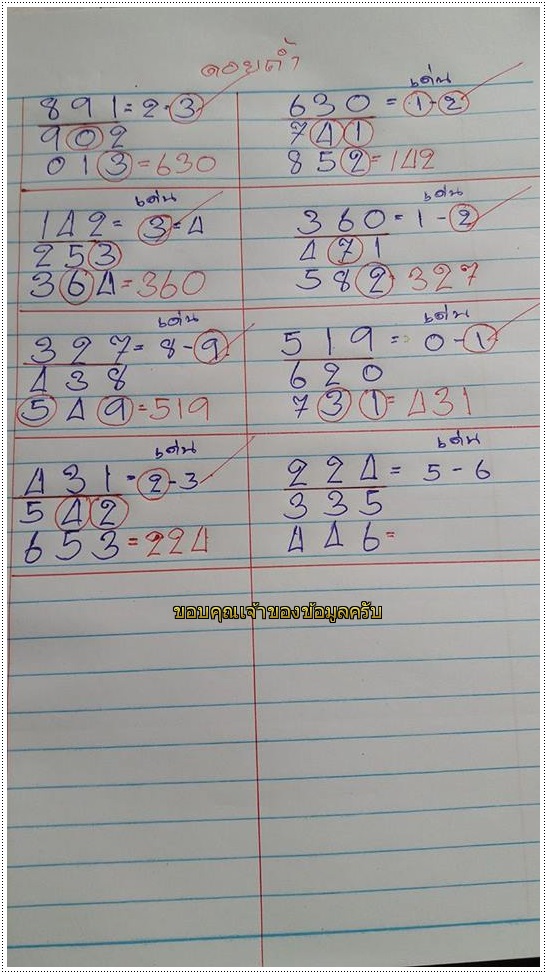 ดอยถ้ำ
891=2-3
902
013=630
เด่น
630=1-2
741
852=142
เด่น
142=3=4
253
364=360
เด่น
360=1-2
471
582=327
เด่น
327=8-9
438
549=519
เด่น
519=0-1
620
731=431
เด่น
431=2-3
542
653=224
เด่น
224=5-6
335
446=
ขอบคุณเจ้าของข้อมูลครับ